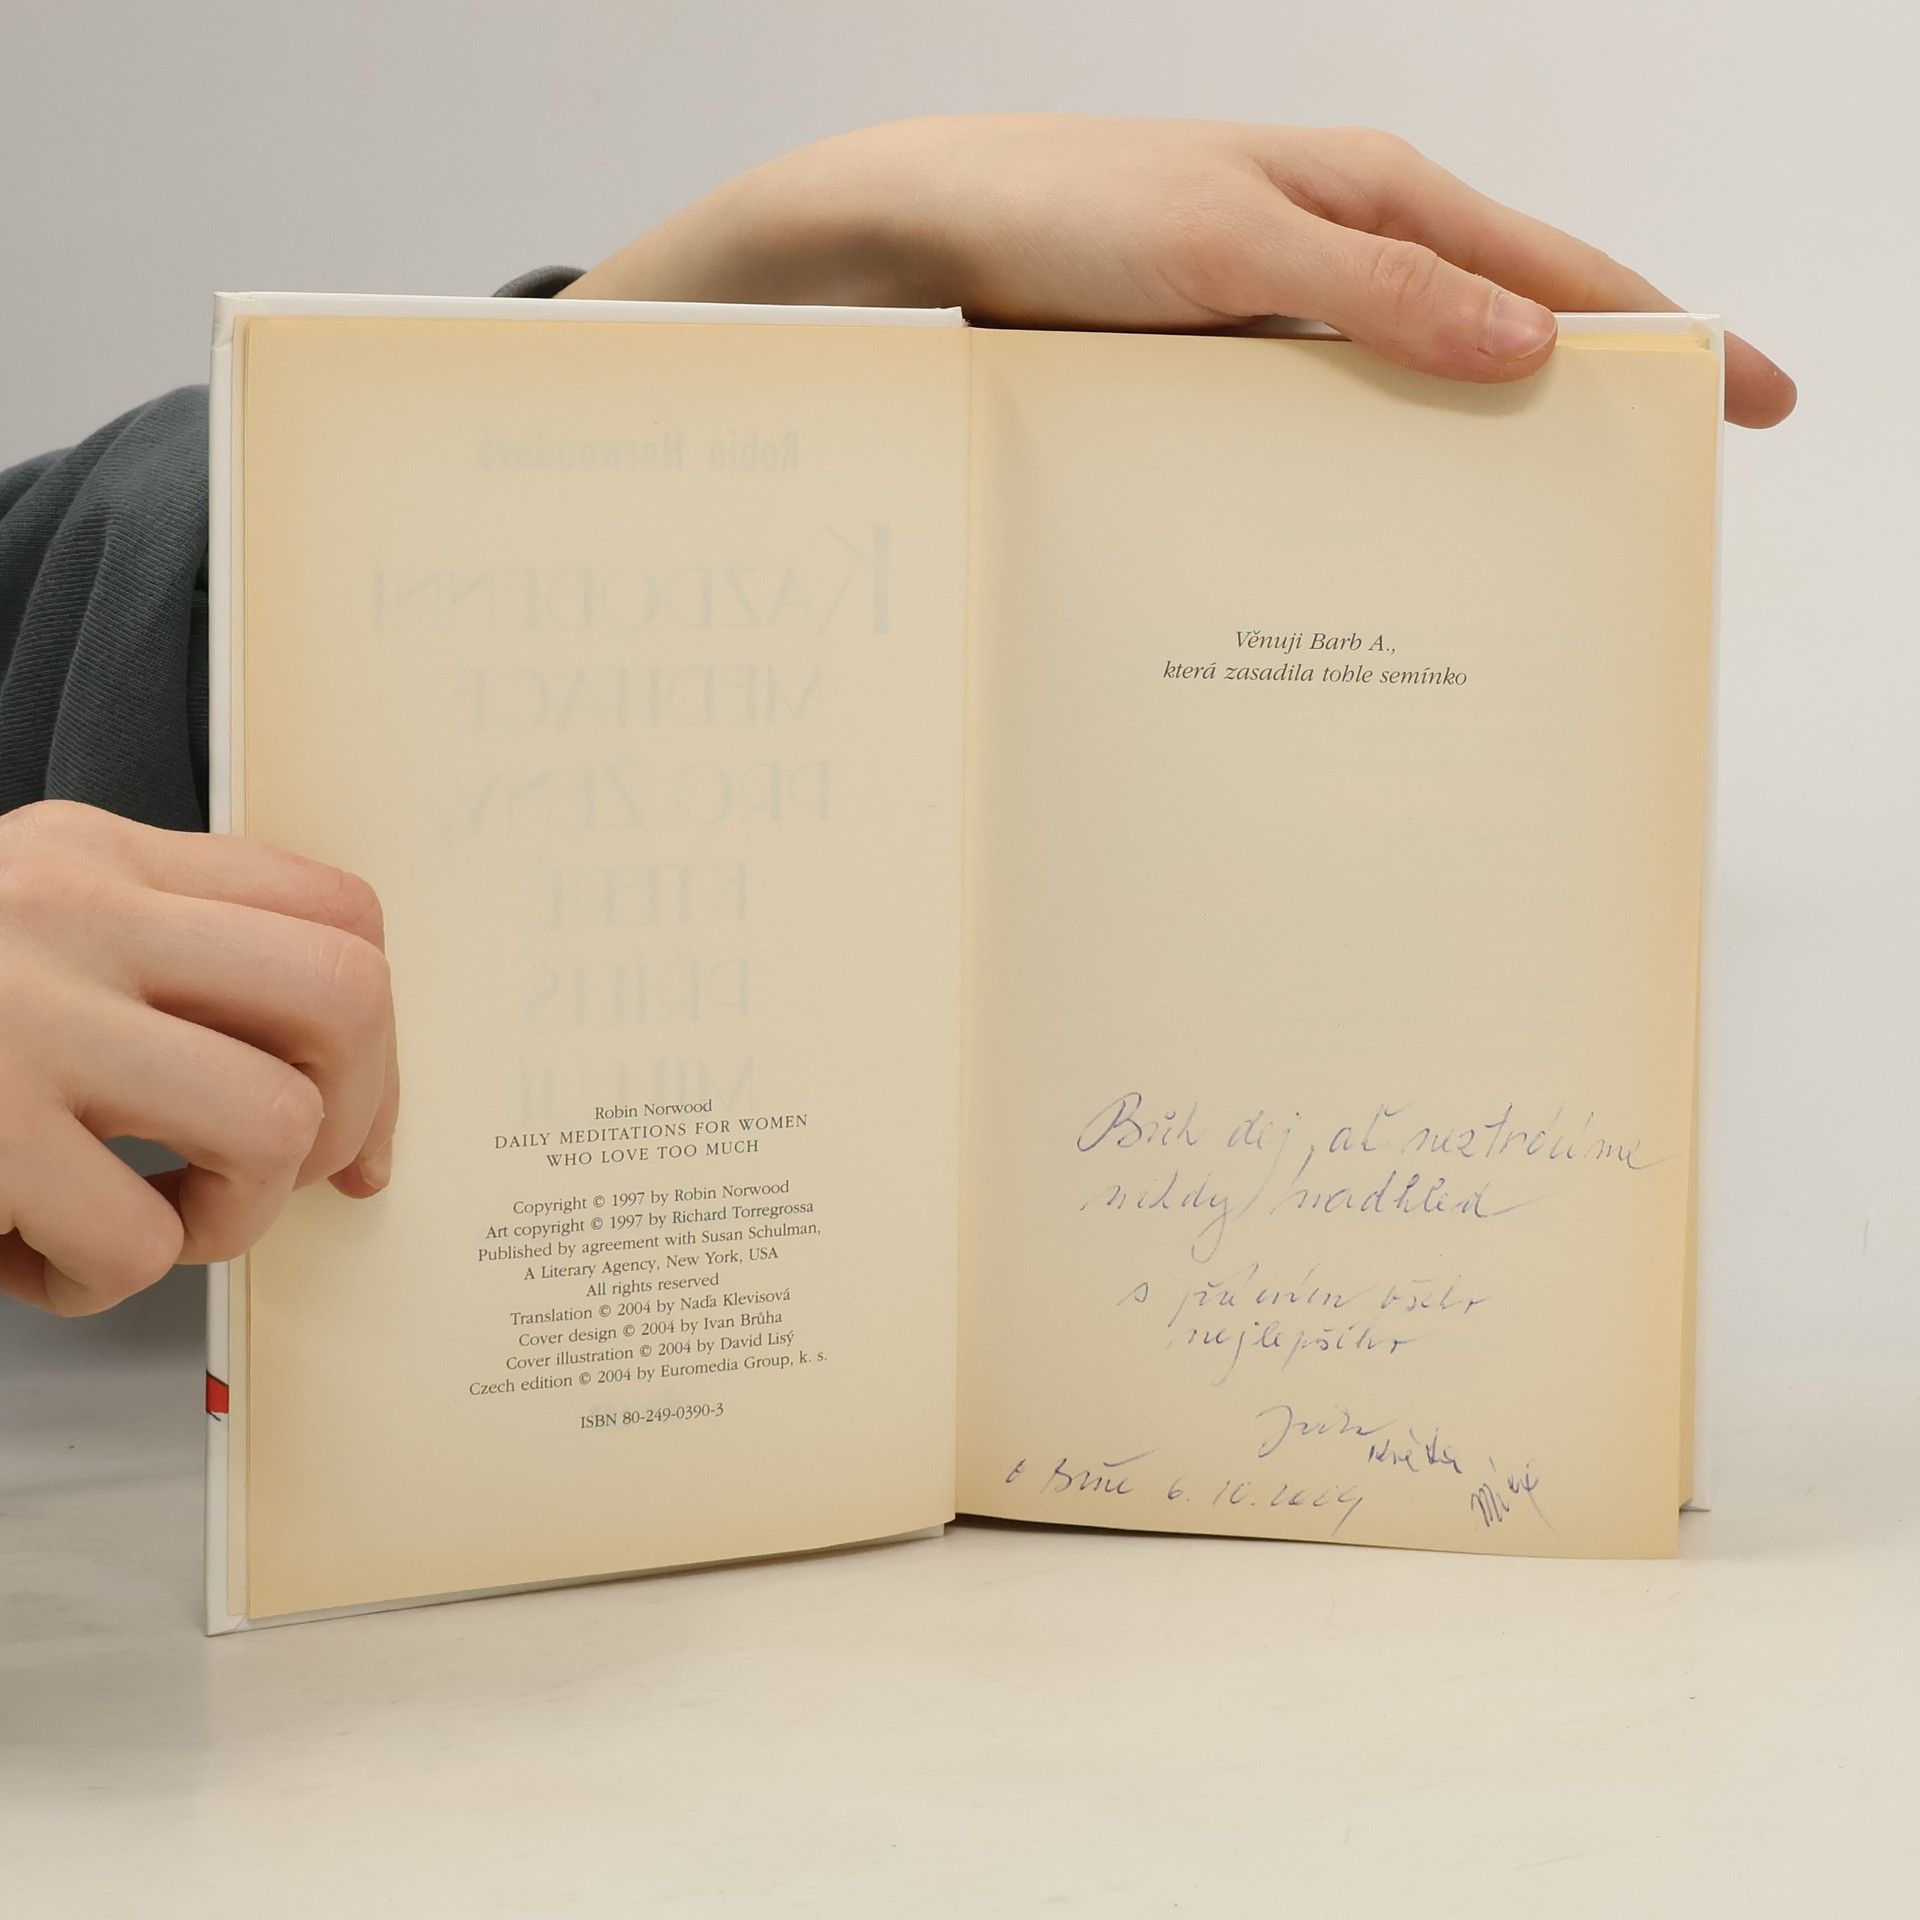 Robin Norwoodová
KAŽDODENNÍ
MEDITACE
PRO ŽENY,
KTERÉ
PŘÍLIŠ
MILUJÍ
Robin Norwood
DAILY MEDITATIONS FOR WOMEN
WHO LOVE TOO MUCH
Copyright © 1997 by Robin Norwood
Art copyright © 1997 by Richard Torregrossa
Published by agreement with Susan Schulman,
A Literary Agency, New York, USA
All rights reserved
Translation © 2004 by Naďa Klevisová
Cover design © 2004 by Ivan Brůha
Cover illustration © 2004 by David Lisý
Czech edition © 2004 by Euromedia Group, k. s.
ISBN 80-249-0390-3
Věnuji Barb A.,
která zasadila tohle semínko
Bůh dej, ať neztratíme
nikdy nadhled
s přáním všeho
nejlepšího
Květa
v Brně 6. 10. 2004